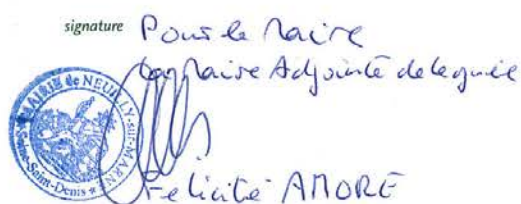 signature Pour le Maire
La Maire Adjointe déléguée
MAIRIE de NEUILLY-sur-MARNE
Seine-Saint-Denis *
Félicité AMORE